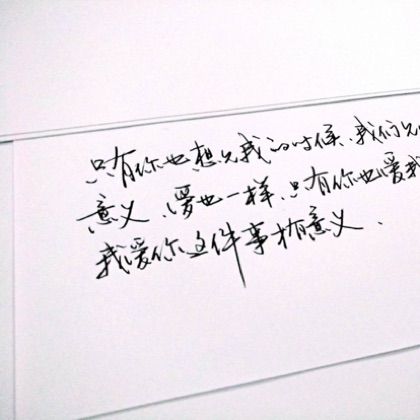 只有你也想见我的时候、我们见
意义、爱也一样、只有你也爱我
我爱你这件事才有意义.